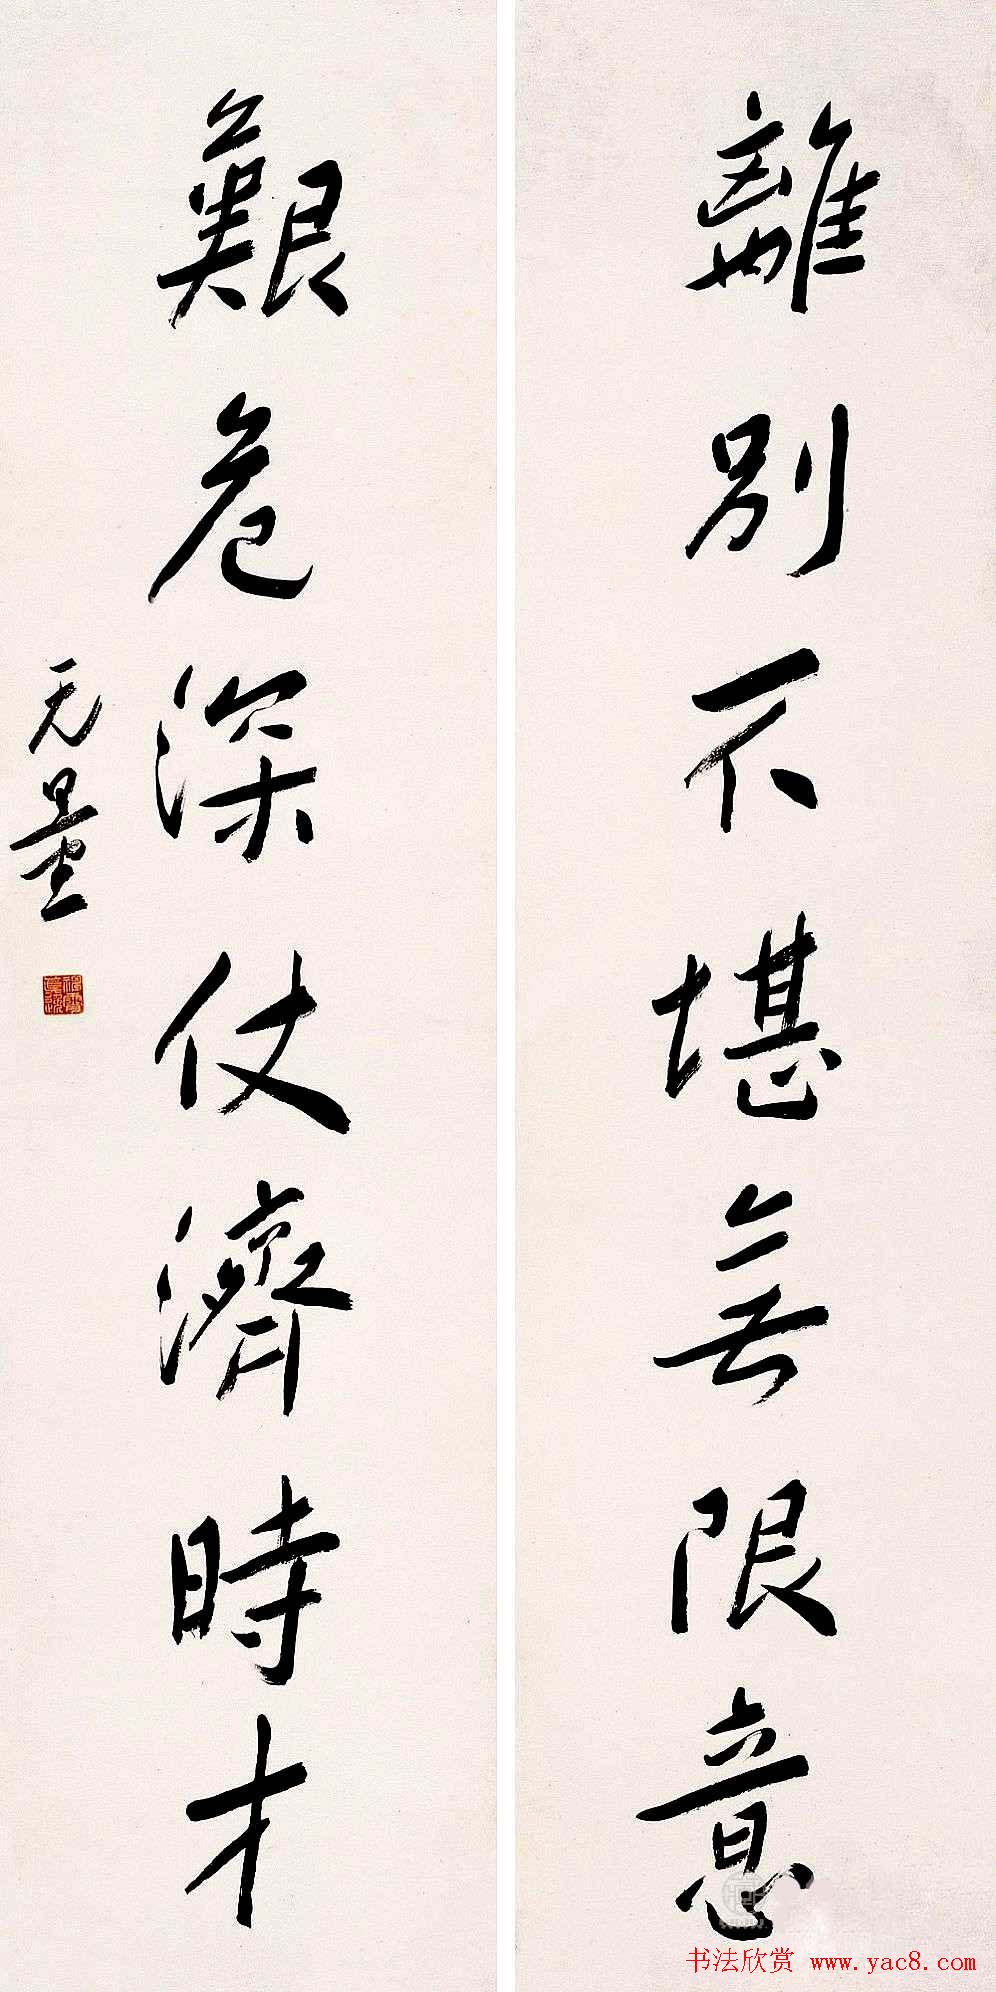 離別不堪無限意
艱危深仗濟時才
无量
书法欣赏 www.yac8.com